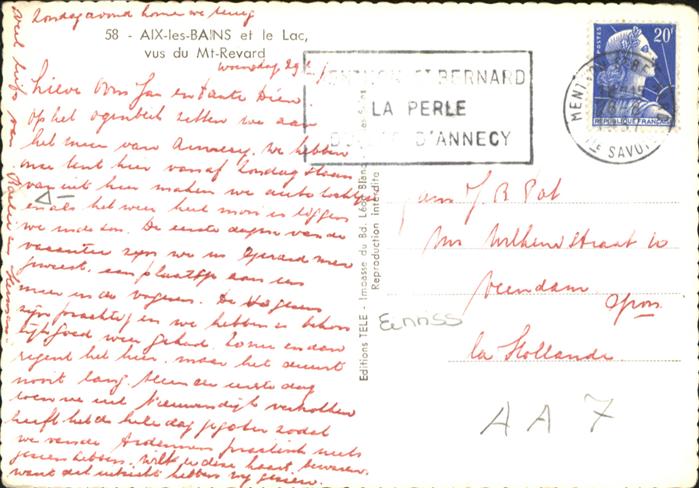 Zondagavond komen we terug
58 - AIX-les-BAINS et le Lac,
vus du Mt-Revard
woensdag
Lieve Oom Jan en tante Dien.
op het ogenblik zitten we aan
het meer van Annecy. We hebben
onze tent hier vanaf Zondag staan
van uit hier maken we auto tochtjes
en als het weer heel mooi is liggen
we in de zon. De eerste dagen van de
vacantie zijn we in Gerardmer
geweest, een plaatsje aan een
meer in de Vogezen. De Vogezen
zijn prachtig en we hebben er behoor
lijk goed weer gehad. Zo nu en dan
regent het hier, maar het duurt
nooit lang. Alleen de eerste dag
toen we uit Nieuwendijk vertrokken
heeft het de hele dag gegoten zodat
we van de Ardennen practisch niets
gezien hebben. Wilt u deze kaart bewaren,
want dit uitzicht hebben wij gezien.
Veel liefs van
MENTHON ST BERNARD
LA PERLE
D'ANNECY
20F
POSTES
REPUBLIQUE FRANÇAISE
SAVOIE
Editions TELE - Impasse du Bd. Léon Blanc
Reproduction interdite
fam J. B. Pot
Wilhelminastraat 10
Veendam
Gron.
la Hollande
AA7